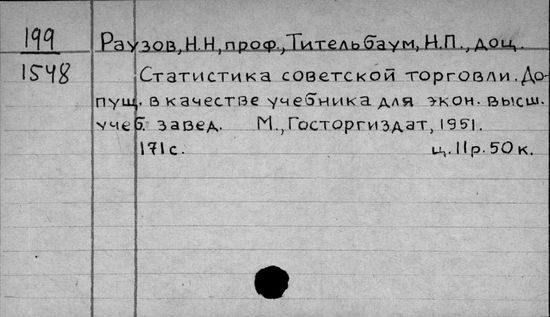 199
Раузов, Н.Н, проф., Тительбаум, Н.П., доц.
1548
Статистика советской торговли. До-
пущ. в качестве учебника для экон. высш.
учеб. завед. М., Госторгиздат, 1951.
171 с. ц. 11 р. 50 к.